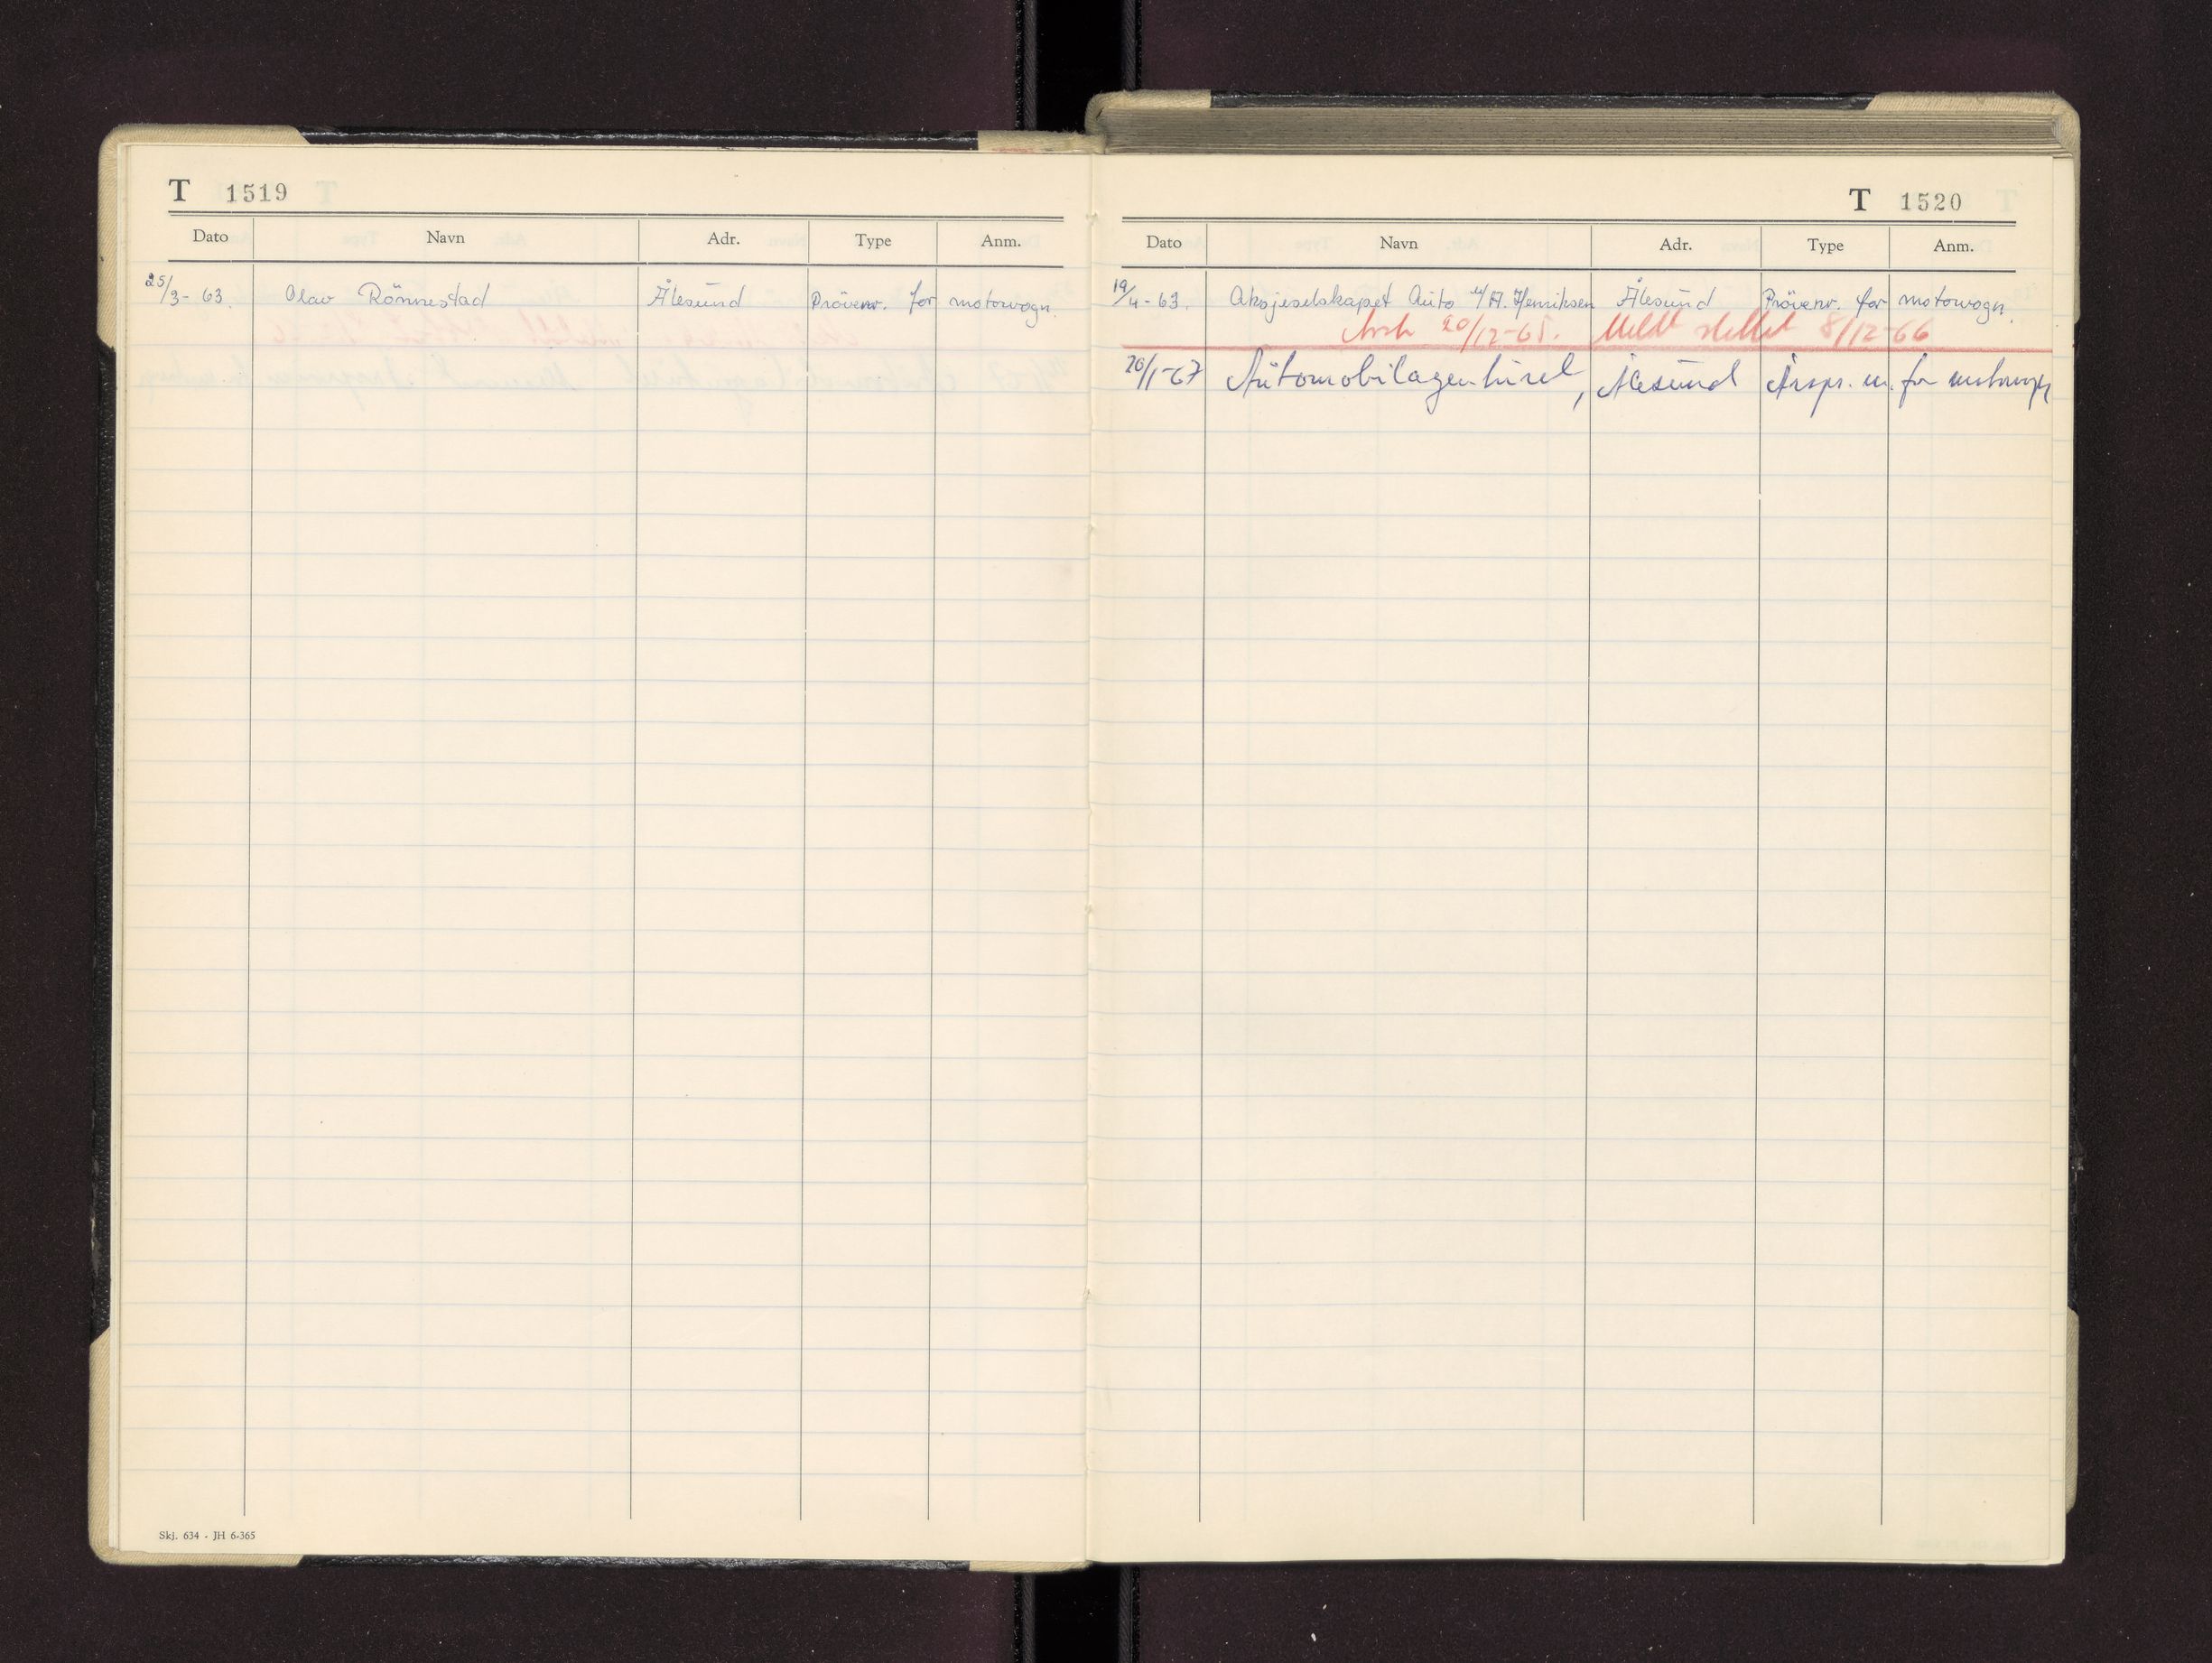 T 1519
Dato Navn Adr. Type Anm.
25/3-63. Olav Rönnestad Ålesund Prövenr. for motorvogn.
Skj. 634 - JH 6-365
T 1520
Dato Navn Adr. Type Anm.
19/4-63. Aksjeselskapet Auto v/ A. Henriksen Ålesund Prövenr. for motorvogn.
20/12-65. Meldt slettet 8/12-66
20/1-67 Automobilagenturet, Ålesund for motorvogn